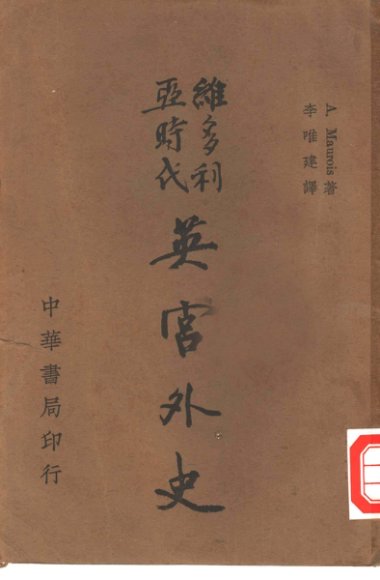 A. Maurois 著
李唯建譯
維多利
亞時代
英宮外史
中華書局印行